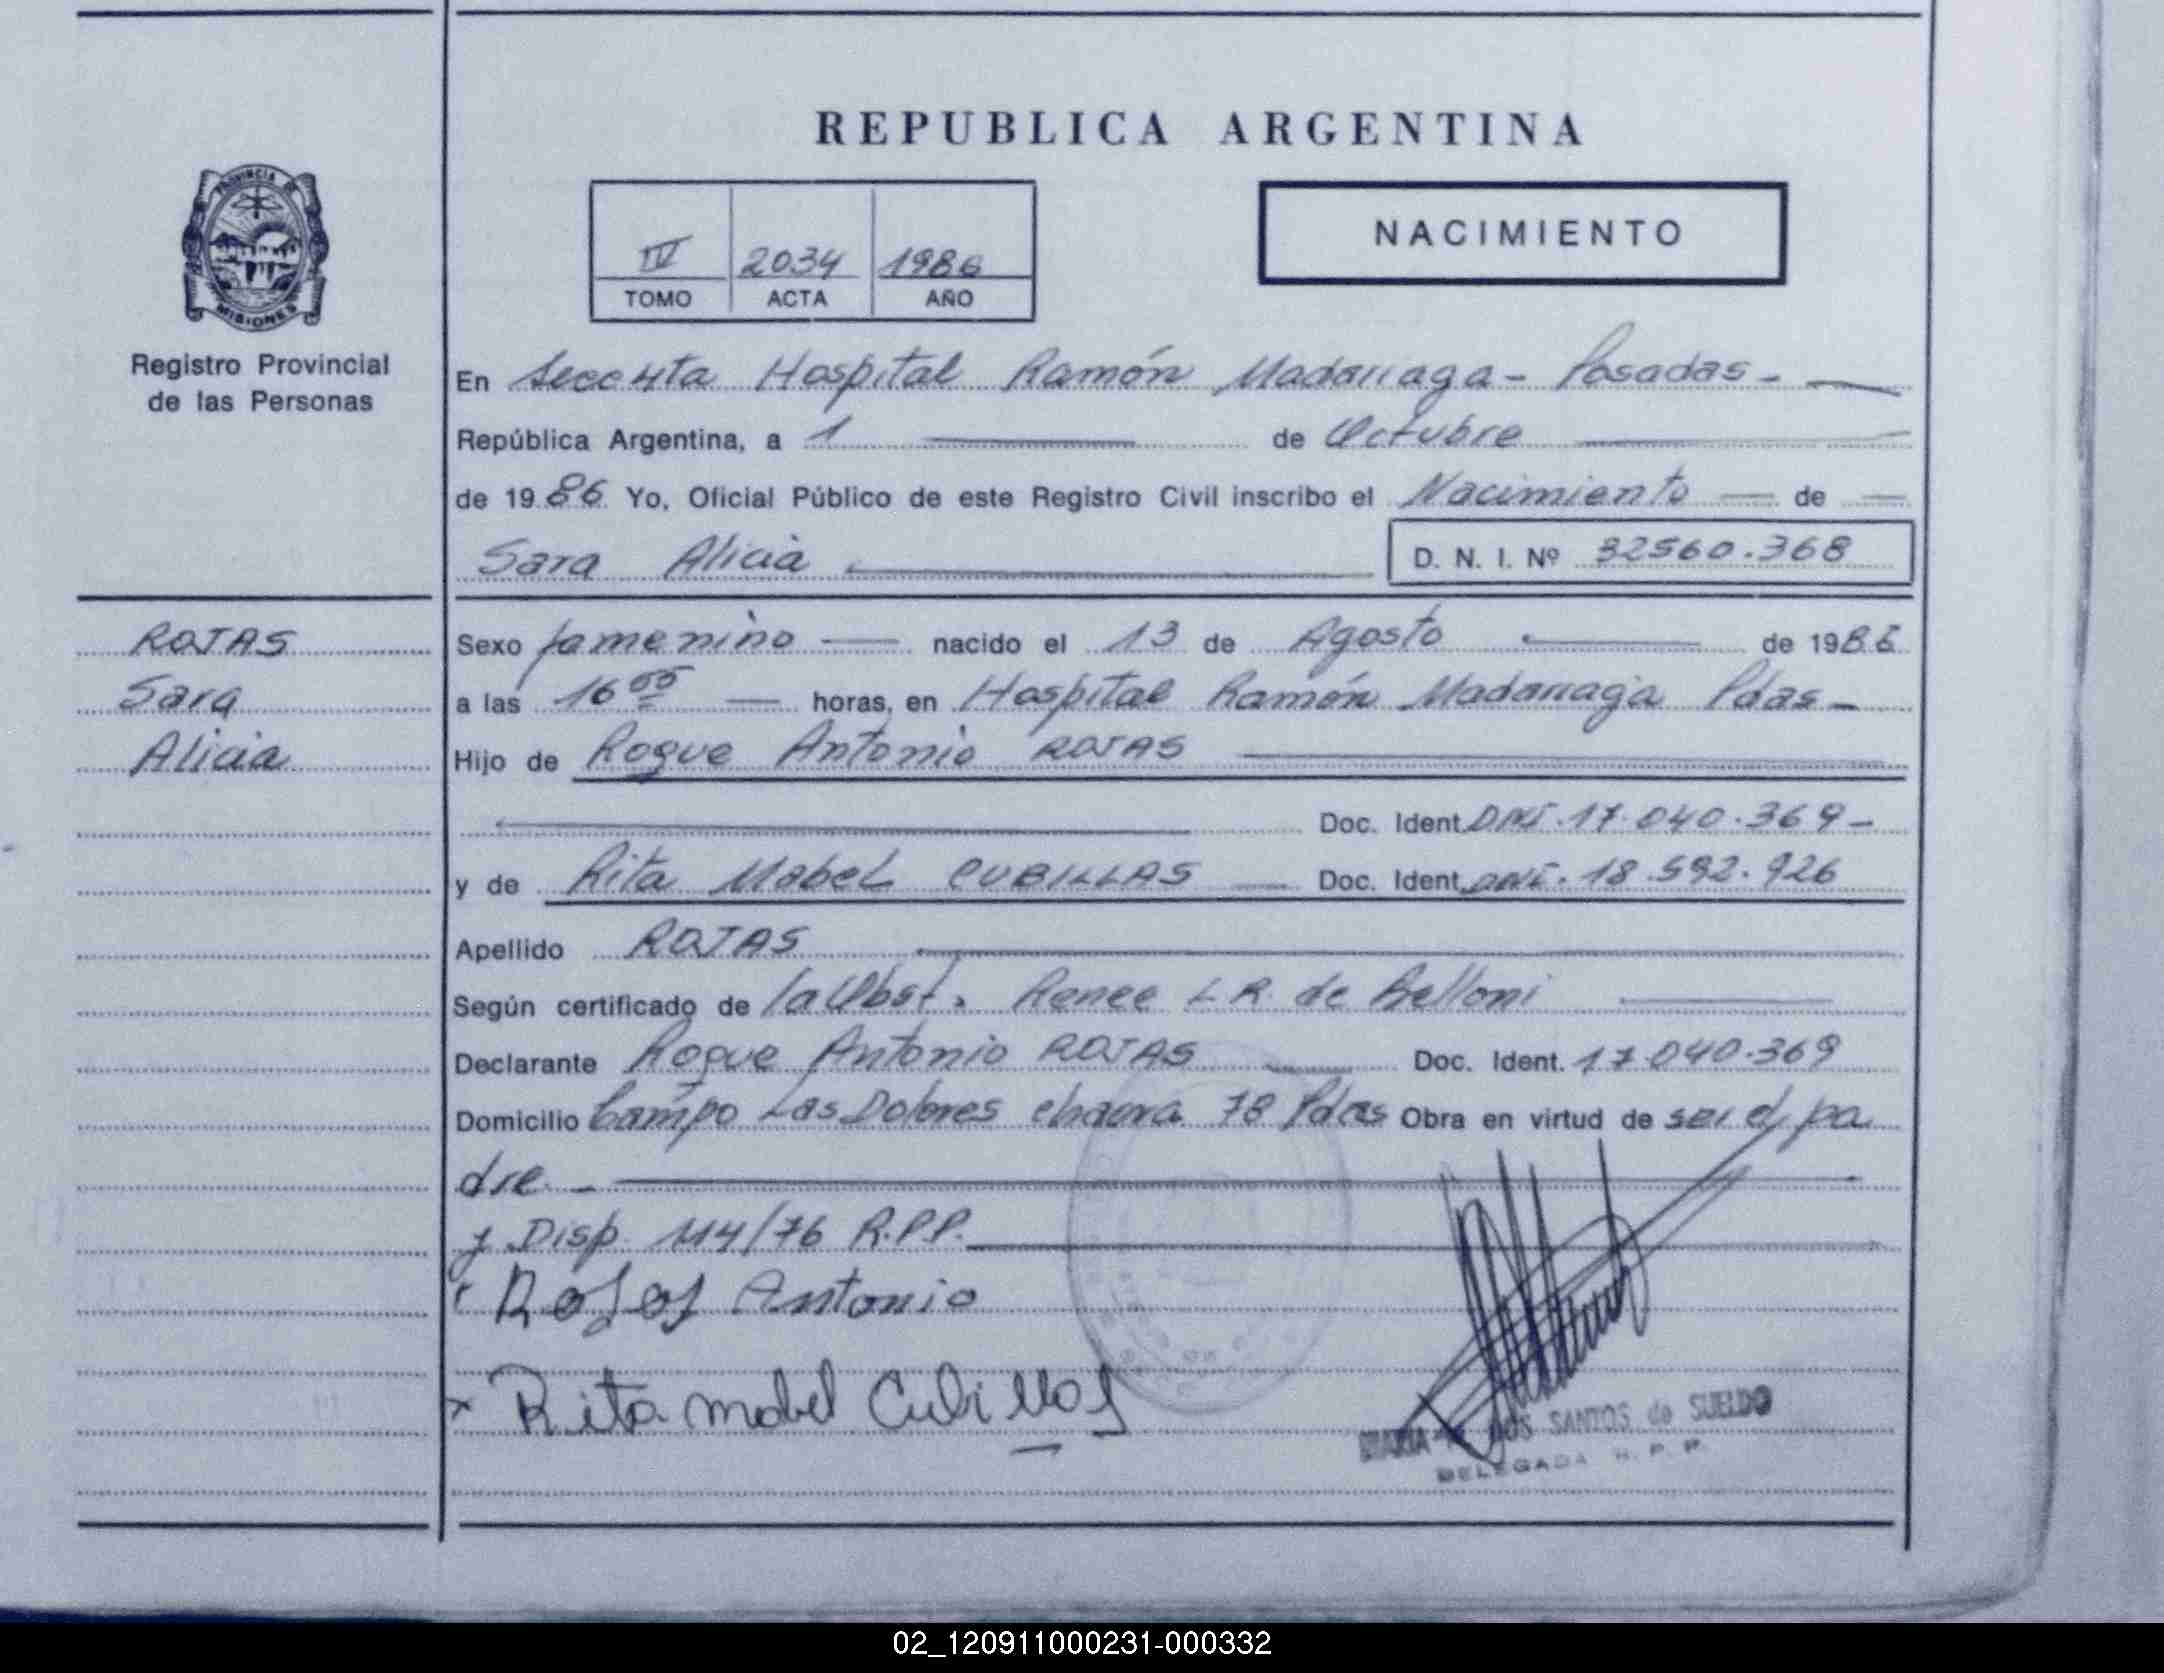 REPUBLICA ARGENTINA
PROVINCIA DE MISIONES
Registro Provincial
de las Personas
IV 2034 1986
TOMO ACTA AÑO
NACIMIENTO
En Hospital Ramón Madariaga - Posadas -
República Argentina, a 1 de Octubre
de 1986 Yo, Oficial Público de este Registro Civil inscribo el Nacimiento de
Sara Alicia
D. N. I. Nº 32560.368
ROJAS
Sara
Alicia
Sexo famenino nacido el 13 de Agosto de 1986
a las 16 horas, en Hospital Ramón Madariaga Pdas -
Hijo de Roque Antonio ROJAS
Doc. Ident. DNI. 17.040.369 -
y de Rita Mabel CUBILLAS Doc. Ident. DNI. 18.592.926
Apellido ROJAS
Según certificado de la Obst. Renee L R. de Belloni
Declarante Roque Antonio ROJAS Doc. Ident. 17.040.369
Domicilio Campo Las Dolores chacra 78 Pdas Obra en virtud de ser el pa
dre -
y Disp. 114/76 R.P.P.
Rojas Antonio
x Rita mabel Cubillas
MARIA DOS SANTOS de SUELDO
DELEGADA R. P. P.
02_120911000231-000332